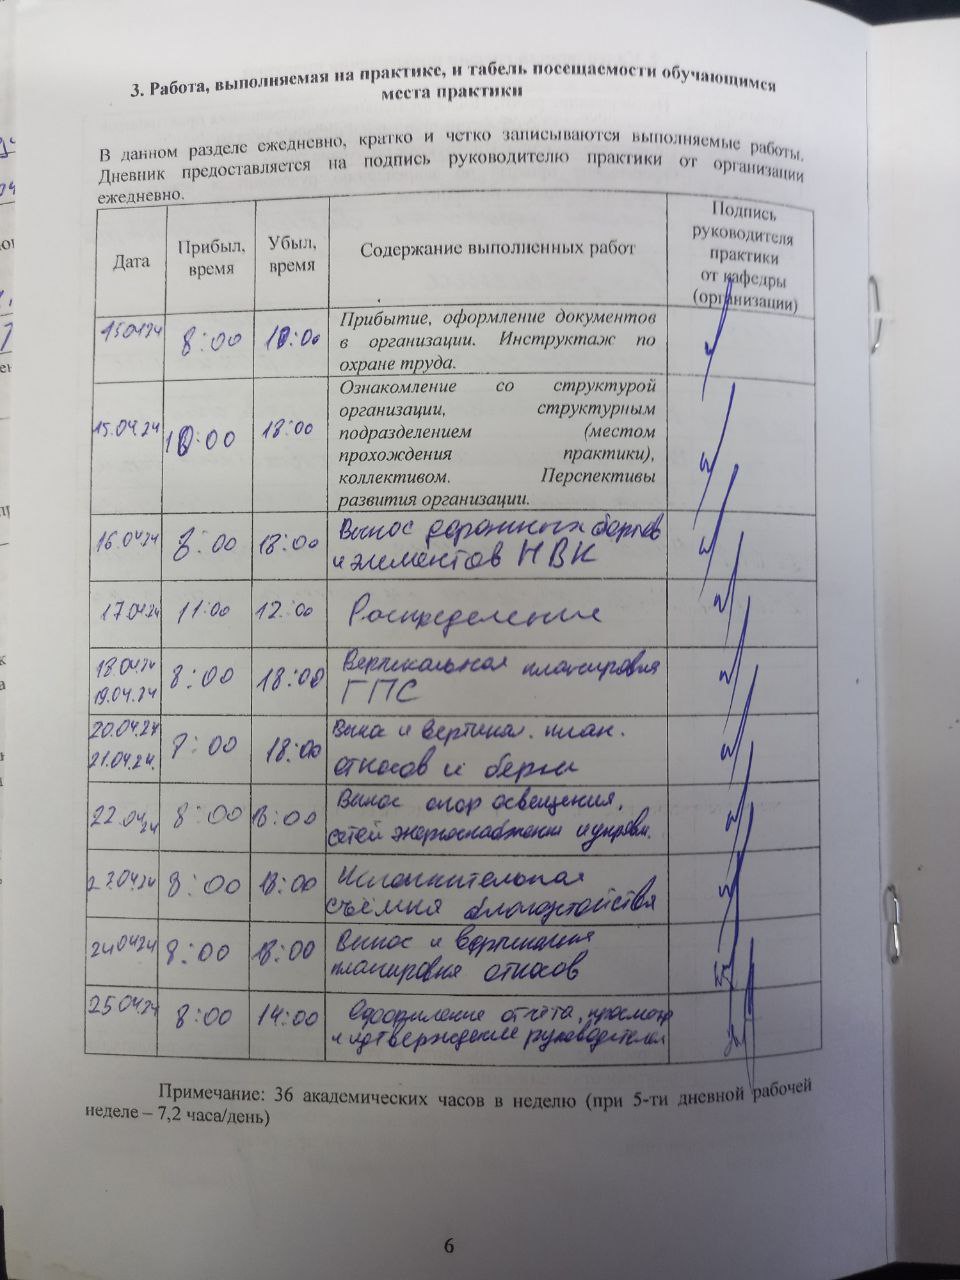 3. Работа, выполняемая на практике, и табель посещаемости обучающимся
места практики
В данном разделе ежедневно, кратко и четко записываются выполняемые работы.
Дневник предоставляется на подпись руководителю практики от организации
ежедневно.
Дата
Прибыл,
время
Убыл,
время
Содержание выполненных работ
Подпись
руководителя
практики
от кафедры
(организации)
15.04.24
8:00
10:00
Прибытие, оформление документов
в организации. Инструктаж по
охране труда.
15.04.24
10:00
18:00
Ознакомление со структурой
организации, структурным
подразделением (местом
прохождения практики),
коллективом. Перспективы
развития организации.
16.04.24
8:00
18:00
Вынос дорожных бортов
и элементов НВК
17.04.24
11:00
12:00
Распределение
18.04.24
19.04.24
8:00
18:00
Вертикальная планировка
ГПС
20.04.24
21.04.24.
8:00
18:00
и вертикал. план.
откосов и
22.04.24
8:00
18:00
Вынос опор освещения,
сетей энергоснабжения
23.04.24
8:00
18:00
Исполнительная
съёмка
24.04.24
8:00
18:00
Вынос и вертикальная
планировка откосов
25.04.24
8:00
14:00
Оформление отчета, просмотр
и утверждение руководителем
Примечание: 36 академических часов в неделю (при 5-ти дневной рабочей
неделе – 7,2 часа/день)
6